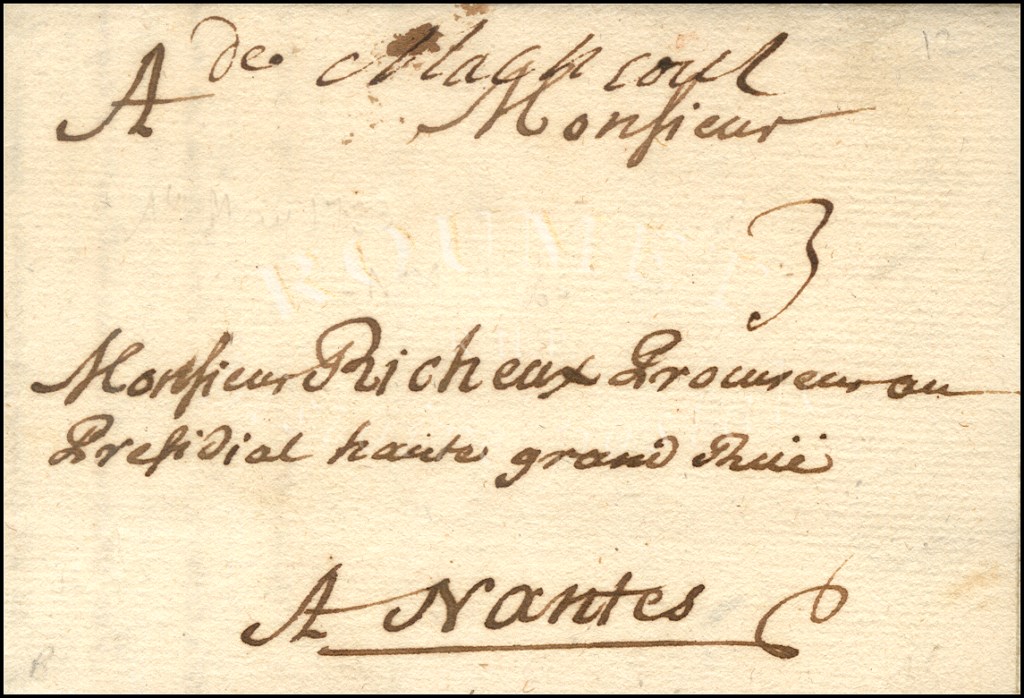 de Machecoul
A Monsieur
3
Monsieur Richeux Procureur au
Presidial haute grand Ruë
A Nantes
ROUMET